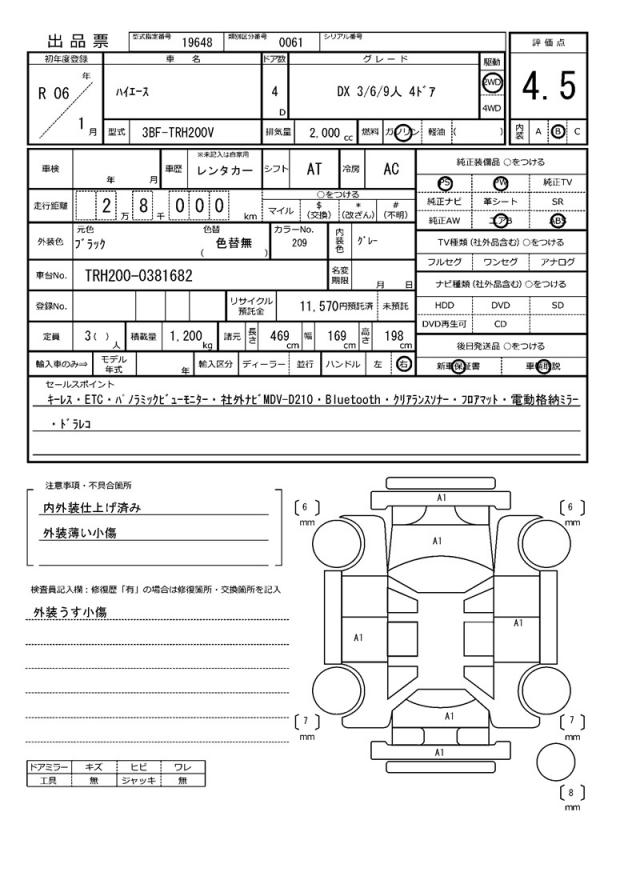 出品票 型式指定番号 19648 類別区分番号 0061 シリアル番号
評価点
4.5
内装 A B C
初年度登録 車 名 ドア数 グレード 駆動
R 06 年 1 月
ﾊｲｴｰｽ
4 D
DX 3/6/9人 4ﾄﾞｱ
2WD
4WD
型式 3BF-TRH200V 排気量 2,000 cc 燃料 ガソリン 軽油 ( )
車検 年 月 車歴 ※未記入は自家用 レンタカー シフト AT 冷房 AC
走行距離 2 万 8 千 0 0 0 km
○をつける
マイル $(交換) *(改ざん) #(不明)
外装色 元色 ﾌﾞﾗｯｸ 色替 色替無 ( ) カラーNo. 209 内装色 ｸﾞﾚｰ
車台No. TRH200-0381682 名変期限 月 日
登録No. リサイクル預託金 11,570円預託済 未預託
定員 3( ) 人 積載量 1,200 kg 諸元 長さ 469 cm 幅 169 cm 高さ 198 cm
輸入車のみ⇒ モデル年式 年 輸入区分 ディーラー 並行 ハンドル 左 右
純正装備品 ○をつける
PS PW 純正TV
純正ナビ 革シート SR
純正AW エアB ABS
TV種類(社外品含む)○をつける
フルセグ ワンセグ アナログ
ナビ種類(社外品含む)○をつける
HDD DVD SD
DVD再生可 CD
後日発送品 ○をつける
新車保証書 車輌取説
セールスポイント
ｷｰﾚｽ・ETC・ﾊﾟﾉﾗﾐｯｸﾋﾞｭｰﾓﾆﾀｰ・社外ﾅﾋﾞMDV-D210・Bluetooth・ｸﾘｱﾗﾝｽｿﾅｰ・ﾌﾛｱﾏｯﾄ・電動格納ﾐﾗｰ
・ﾄﾞﾗﾚｺ
注意事項・不具合箇所
内外装仕上げ済み
外装薄い小傷
検査員記入欄：修復歴「有」の場合は修復箇所・交換箇所を記入
外装うす小傷
ドアミラー キズ ヒビ ワレ
工具 無 ジャッキ 無
A1
[ 6 ] mm
[ 6 ] mm
A1
A1
A1
A1
A1
[ 7 ] mm
[ 7 ] mm
[ 8 ] mm